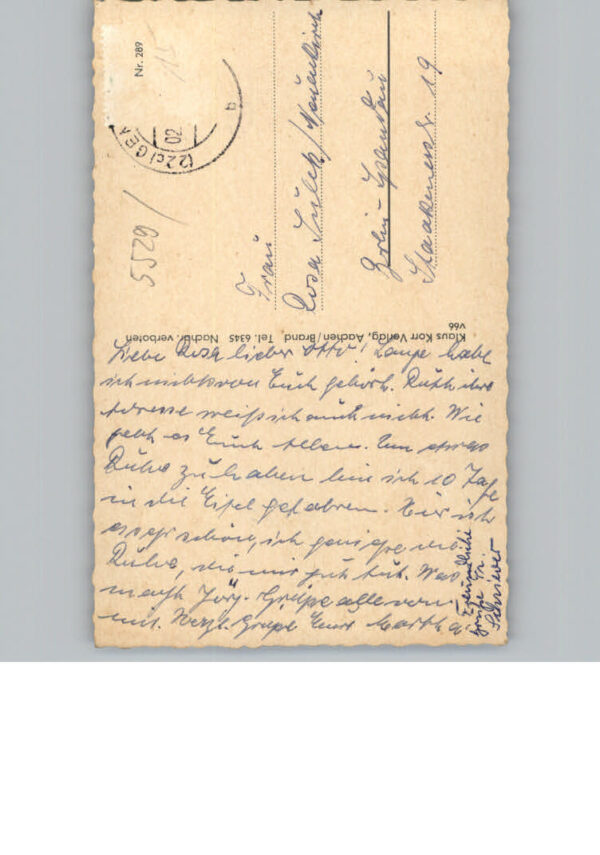 Nr. 289
(22c) GEM
02
b
5529 /
Frau
Rosa Sülch/Neuenkirch
Berlin-Spandau
Staakenerstr. 19
Klaus Korr Verlag, Aachen/Brand Tel. 6345 Nachdr. verboten
v66
Liebe Rosa lieber Otto! Lange habe
ich nichts von Euch gehört. Ruth ihre
Adresse weiß ich auch nicht. Wie
geht es Euch allen. Um etwas
Ruhe zu haben bin ich 10 Tage
in die Eifel gefahren. Hier ist
es sehr schön, ich genieße die
Ruhe, die mir gut tut. Was
macht Jörg. Grüße alle von
mir. Herzl. Grüße Eure Martha
Freundliche
Grüße Fr.
Schriewer